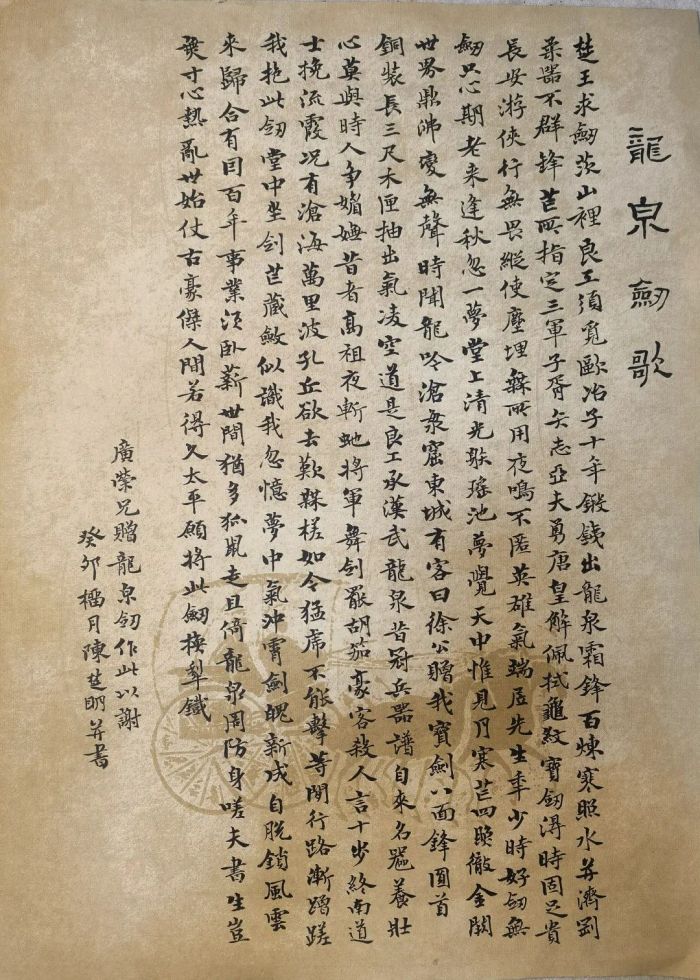 龍泉劒歌
楚王求劒茨山裡良工須覓歐冶子十年鍛錢出龍泉霜鋒百煉寒照水并濟剛
柔器不群鋒芒所指定三軍子胥矢志亞夫勇唐皇解佩拭龜紋寶劒得時固足貴
長安游俠行無畏縱使塵埋無所用夜鳴不匿英雄氣端居先生年少時好劒無
劒只心期老來逢秋忽一夢堂上清光射瑤池夢覺天中惟見月寒芒四照徹金闕
世界鼎沸寂無聲時聞龍吟滄泉窟東城有客曰徐公贈我寶劍八面鋒圓首
銅裝長三尺木匣抽出氣凌空道是良工承漢武龍泉昔冠兵器譜自來名器養壯
心莫與時人爭媚嫵昔者高祖夜斬虵將軍舞劍厭胡笳豪客殺人言十步終南道
士挽流霞况有滄海萬里波孔丘欲去歎槎如今猛虎不能擊等閒行路漸蹭蹉
我抱此劒堂中坐劍芒藏斂似識我忽憶夢中氣沖霄劍魄新成自脫鎖風雲
來歸合有囘百年事業須卧薪世間猶多狐鼠走且倚龍泉周防身嗟夫書生豈
無寸心熱亂世始仗古豪傑人間若得久太平願將此劒換犁鐵
廣榮兄贈龍泉劒作此以謝
癸卯榴月陳楚明并書